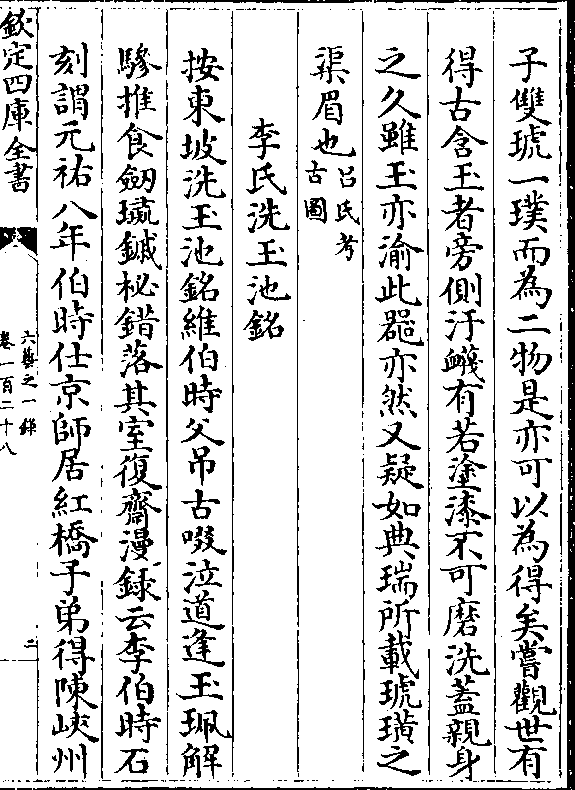 子雙琥一璞而為二物是亦可以為得矣嘗觀世有
得古含玉者旁側汙衊有若塗漆不可磨洗蓋親身
之久雖玉亦渝此器亦然又疑如典瑞所載琥璜之
渠眉也呂氏考古圖
李氏洗玉池銘
按東坡洗玉池銘維伯時父吊古啜泣道逢玉珮解
驂推食劔璏鏚柲錯落其室復齋漫録云李伯時石
刻謂元祐八年伯時仕京師居紅橋子弟得陳峽州
欽定四庫全書
六藝之一錄
卷一百二十八
二